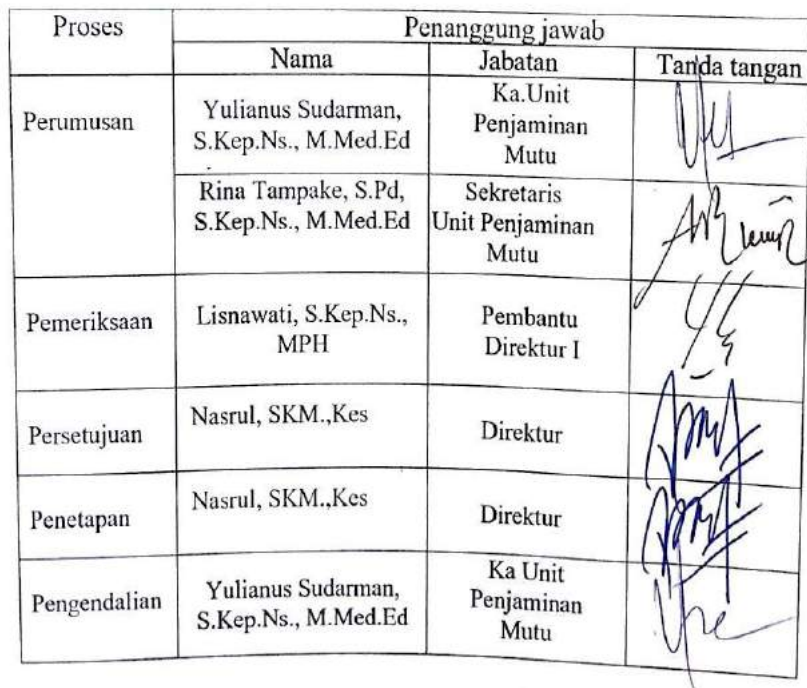 Proses
Penanggung jawab
Nama
Jabatan
Tanda tangan
Perumusan
Yulianus Sudarman,
S.Kep.Ns., M.Med.Ed
Ka.Unit
Penjaminan
Mutu
Rina Tampake, S.Pd,
S.Kep.Ns., M.Med.Ed
Sekretaris
Unit Penjaminan
Mutu
Pemeriksaan
Lisnawati, S.Kep.Ns.,
MPH
Pembantu
Direktur I
Persetujuan
Nasrul, SKM.,Kes
Direktur
Penetapan
Nasrul, SKM.,Kes
Direktur
Pengendalian
Yulianus Sudarman,
S.Kep.Ns., M.Med.Ed
Ka Unit
Penjaminan
Mutu